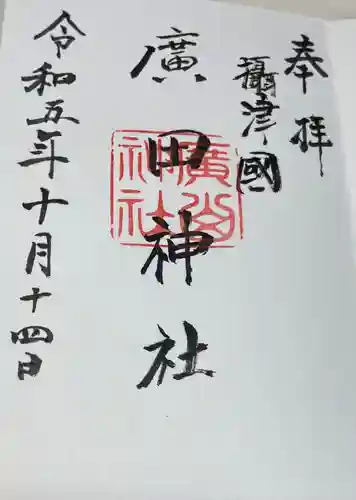 奉拝
攝津國
廣田神社
廣田神社
令和五年十月十四日